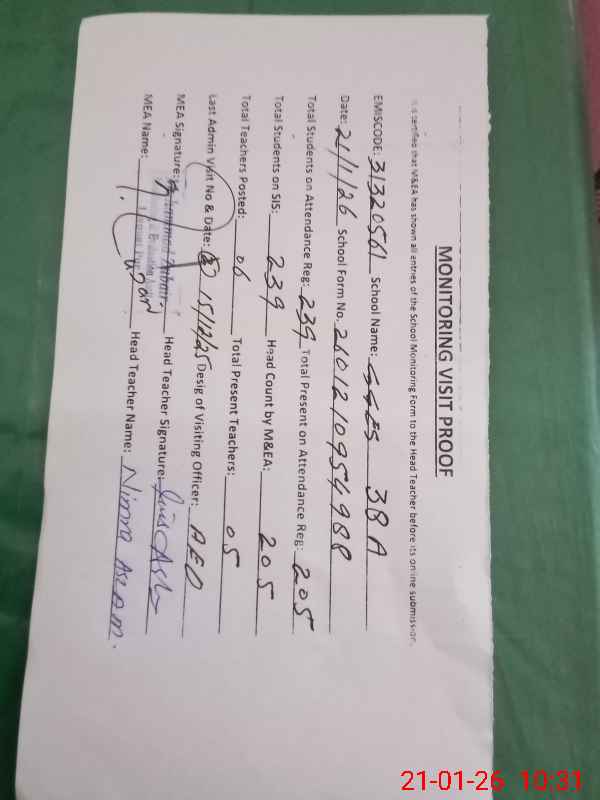 MONITORING VISIT PROOF
It is certified that M&EA has shown all entries of the School Monitoring Form to the Head Teacher before its online submission.
EMISCODE: 31320561 School Name: GGES 38A
Date: 21/1/26 School Form No. 2601210954988
Total Students on Attendance Reg: 239 Total Present on Attendance Reg: 205
Total Students on SIS: 239 Head Count by M&EA: 205
Total Teachers Posted: 06 Total Present Teachers: 05
Last Admin Visit No & Date: 15/12/25 Desig of Visiting Officer: AEO
MEA Signature: Head Teacher Signature:
MEA Name: Head Teacher Name: Nimra Aslam.
21-01-26 10:31